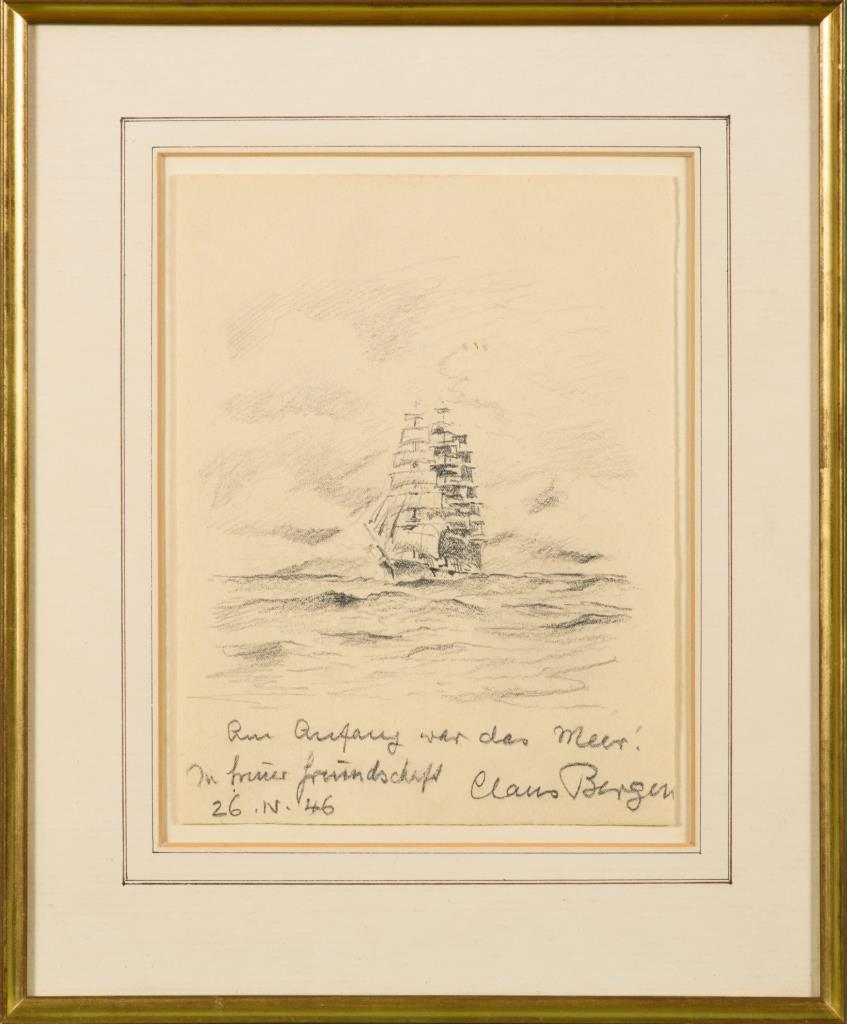 Am Anfang war das Meer!
In treuer Freundschaft
Claus Bergen
26.IV.46